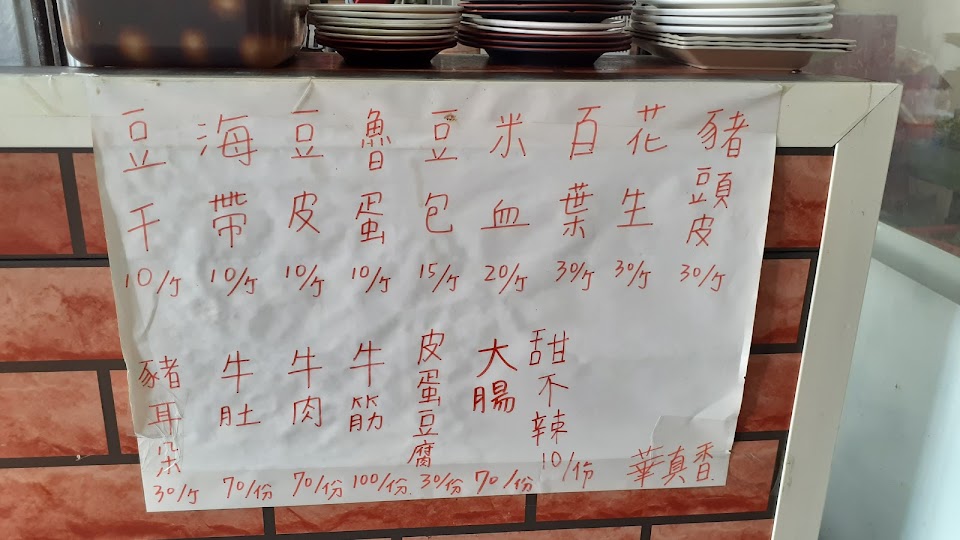 豆干 10/ケ
海帶 10/ケ
豆皮 10/ケ
魯蛋 10/ケ
豆包 15/ケ
米血 20/ケ
百葉 30/ケ
花生 30/ケ
豬頭皮 30/ケ
豬耳朵 30/ケ
牛肚 70/份
牛肉 70/份
牛筋 100/份
皮蛋豆腐 30/份
大腸 70/份
甜不辣 10/份
華真香